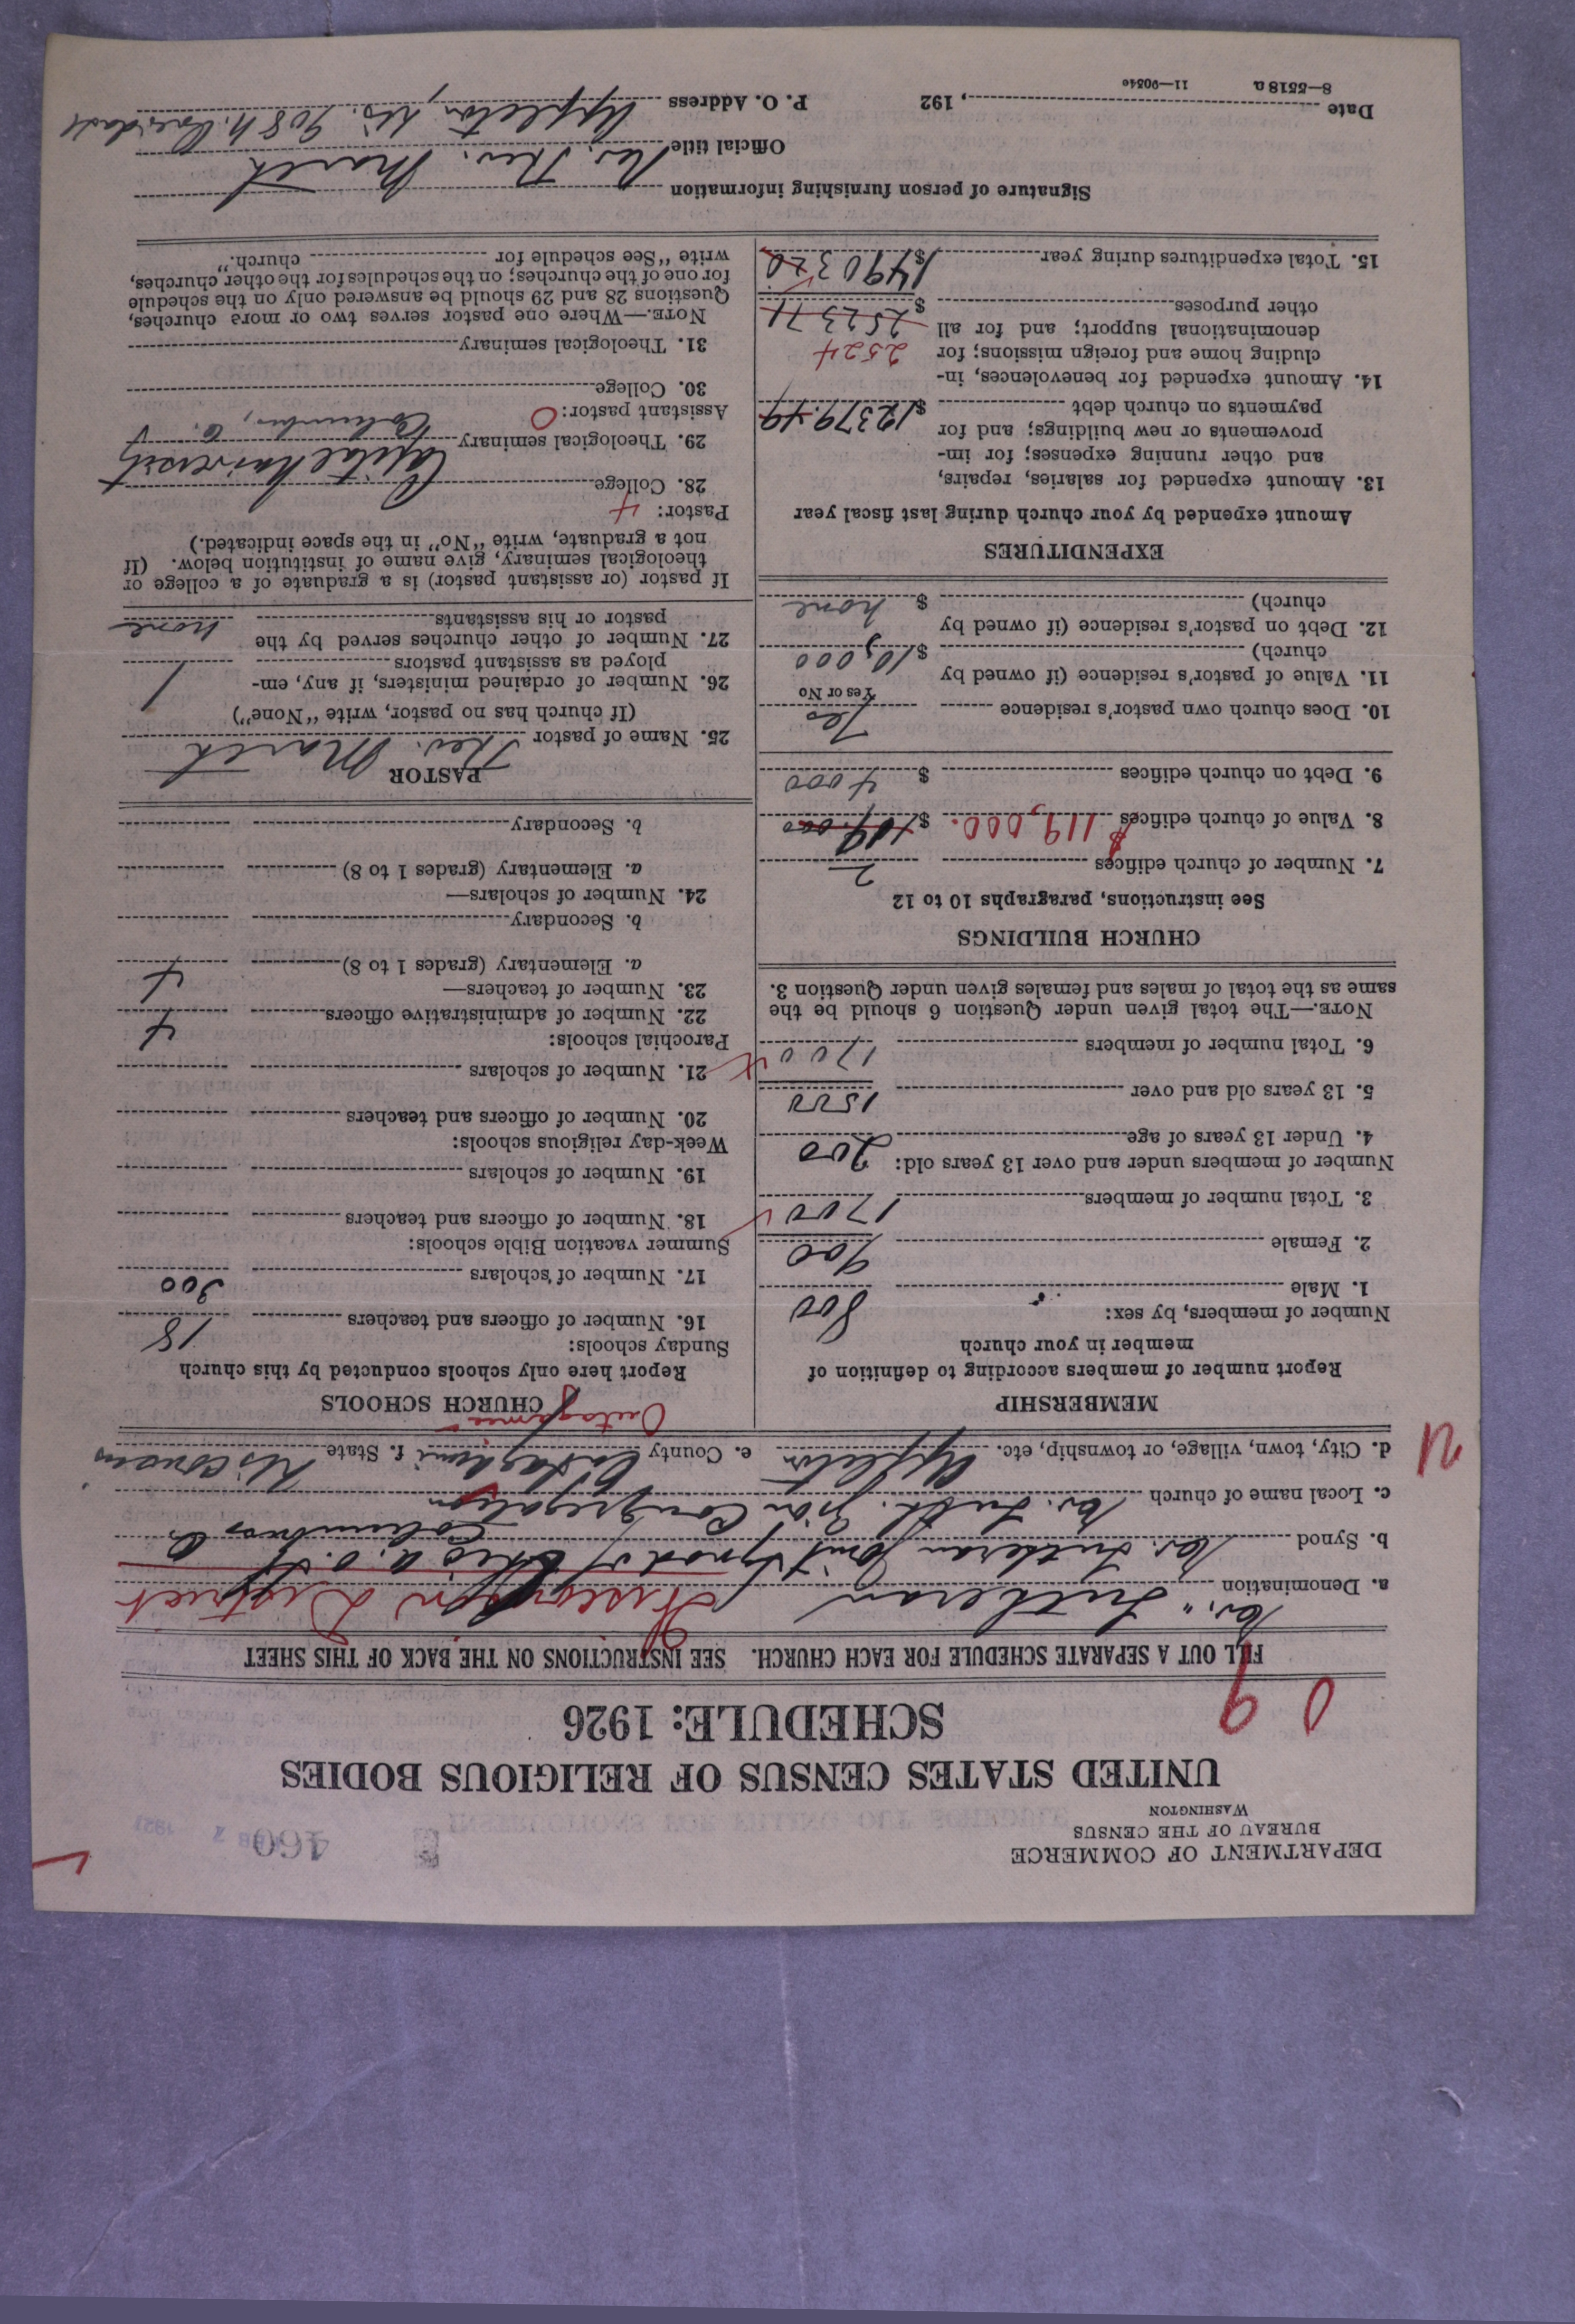 DEPARTMENT OF COMMERCE
BUREAU OF THE CENSUS
WASHINGTON
460
UNITED STATES CENSUS OF RELIGIOUS BODIES
SCHEDULE: 1926
FILL OUT A SEPARATE SCHEDULE FOR EACH CHURCH. SEE INSTRUCTIONS ON THE BACK OF THIS SHEET
a. Denomination Ev. Lutheran Wisconsin District
b. Synod Ev. Lutheran Joint Synod of Ohio a. o. St. Columbus O.
c. Local name of church Ev. Luth. Zion Congregation
d. City, town, village, or township, etc. Appleton e. County Outagami f. State Wisconsin
Outagamie
MEMBERSHIP
Report number of members according to definition of
member in your church
Number of members, by sex:
1. Male 800
2. Female 900
3. Total number of members 1700
Number of members under and over 13 years old:
4. Under 13 years of age 200
5. 13 years old and over 1500
6. Total number of members 1700
NOTE.—The total given under Question 6 should be the
same as the total of males and females given under Question 3.
CHURCH BUILDINGS
See instructions, paragraphs 10 to 12
7. Number of church edifices 2
8. Value of church edifices $119,000. $
9. Debt on church edifices $ 4000
10. Does church own pastor's residence Yes
Yes or No
11. Value of pastor's residence (if owned by
church) $10,000
12. Debt on pastor's residence (if owned by
church) $ none
EXPENDITURES
Amount expended by your church during last fiscal year
13. Amount expended for salaries, repairs,
and other running expenses; for im-
provements or new buildings; and for
payments on church debt $12379.49
14. Amount expended for benevolences, in-
cluding home and foreign missions; for 2524
denominational support; and for all 252371
other purposes $
15. Total expenditures during year $1490320
CHURCH SCHOOLS
Report here only schools conducted by this church
Sunday schools:
16. Number of officers and teachers 18
17. Number of scholars 300
Summer vacation Bible schools:
18. Number of officers and teachers
19. Number of scholars
Week-day religious schools:
20. Number of officers and teachers
21. Number of scholars
Parochial schools:
22. Number of administrative officers 4
23. Number of teachers—
a. Elementary (grades 1 to 8) 4
b. Secondary
24. Number of scholars—
a. Elementary (grades 1 to 8)
b. Secondary
PASTOR
25. Name of pastor Theo. Marth
(If church has no pastor, write "None")
26. Number of ordained ministers, if any, em-
ployed as assistant pastors 1
27. Number of other churches served by the
pastor or his assistants none
If pastor (or assistant pastor) is a graduate of a college or
theological seminary, give name of institution below. (If
not a graduate, write "No" in the space indicated.)
Pastor:
28. College Capital University
29. Theological seminary Columbus, O.
Assistant pastor: O
30. College
31. Theological seminary
NOTE.—Where one pastor serves two or more churches,
Questions 28 and 29 should be answered only on the schedule
for one of the churches; on the schedules for the other churches,
write "See schedule for church."
Signature of person furnishing information
Official title Rev. Theo. Marth
Date , 192 P. O. Address Appleton, Wis. 908 N.
8—5518 a 11—9054e